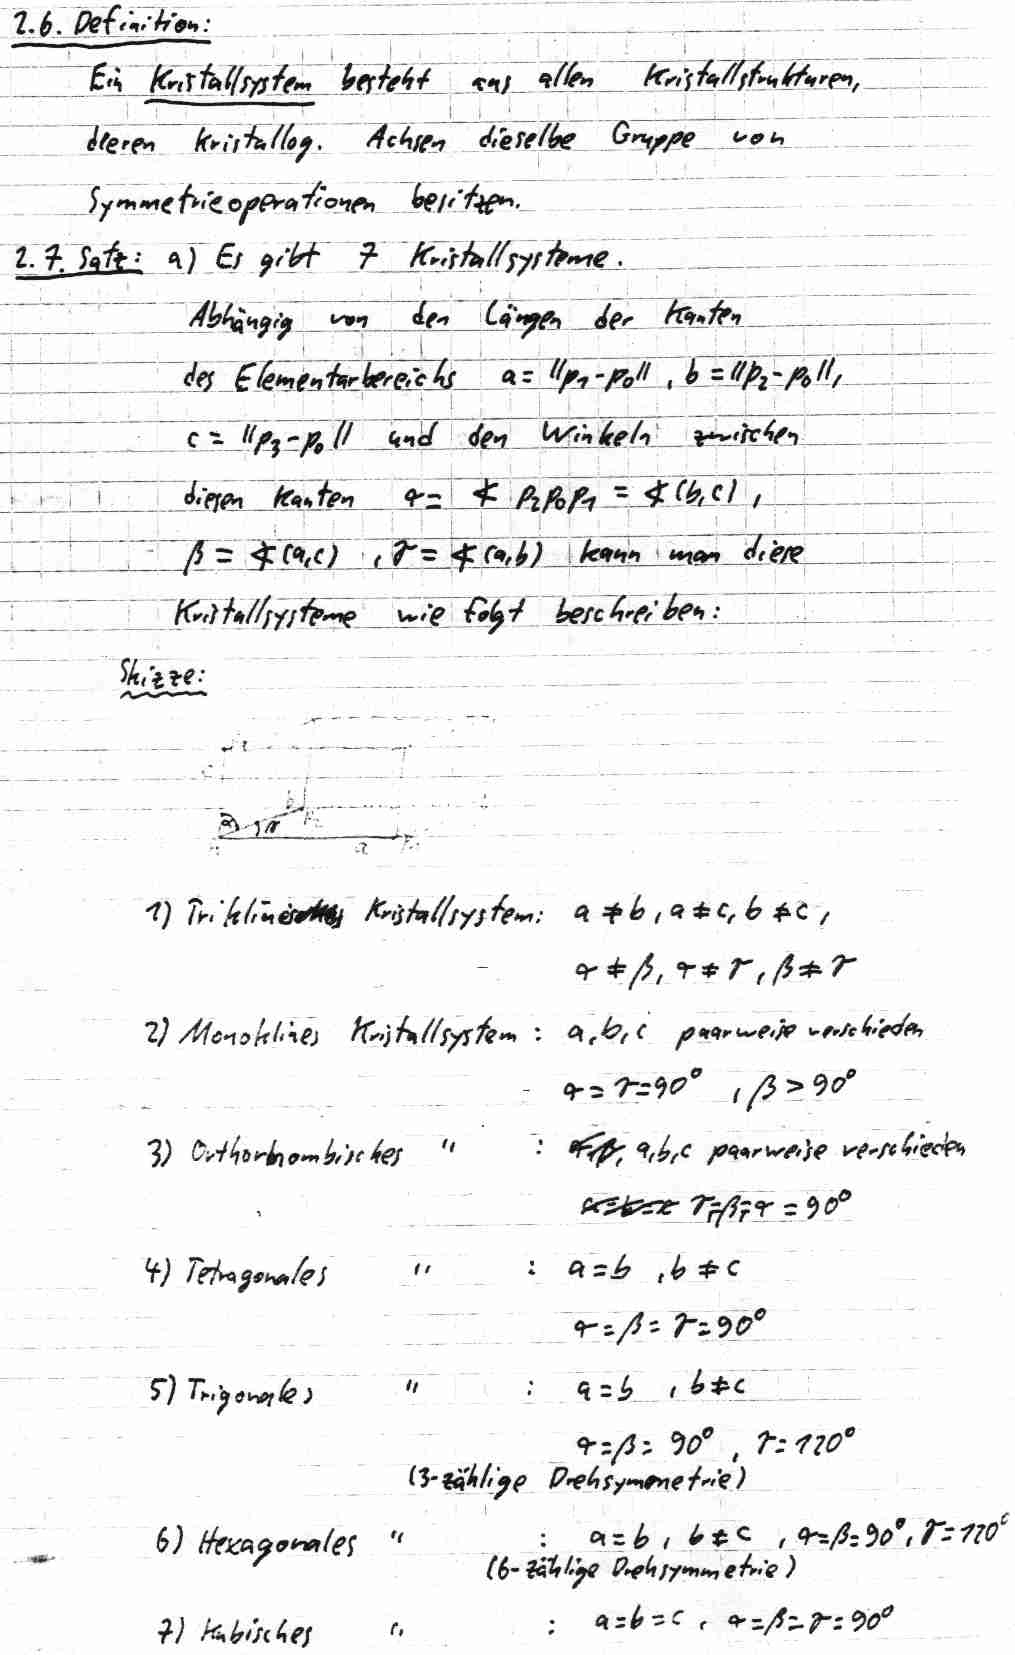 2.6. Definition:
Ein Kristallsystem besteht aus allen Kristallstrukturen,
deren kristallog. Achsen dieselbe Gruppe von
Symmetrieoperationen besitzen.
2.7. Satz: a) Es gibt 7 Kristallsysteme.
Abhängig von den Längen der Kanten
des Elementarbereichs a = ||p₁-p₀||, b = ||p₂-p₀||,
c = ||p₃-p₀|| und den Winkeln zwischen
diesen Kanten α = ∢ p₂p₀p₁ = ∢(b,c),
β = ∢(a,c), γ = ∢(a,b) kann man diese
Kristallsysteme wie folgt beschreiben:
Skizze:
γ
a
1) Triklines Kristallsystem: a ≠ b, a ≠ c, b ≠ c,
α ≠ β, α ≠ γ, β ≠ γ
2) Monoklines Kristallsystem: a, b, c paarweise verschieden
α = γ = 90°, β > 90°
3) Orthorhombisches " : a, b, c paarweise verschieden
γ = β = α = 90°
4) Tetragonales " : a = b, b ≠ c
α = β = γ = 90°
5) Trigonales " : a = b, b ≠ c
α = β = 90°, γ = 120°
(3-zählige Drehsymmetrie)
6) Hexagonales " : a = b, b ≠ c, α = β = 90°, γ = 120°
(6-zählige Drehsymmetrie)
7) Kubisches " : a = b = c, α = β = γ = 90°